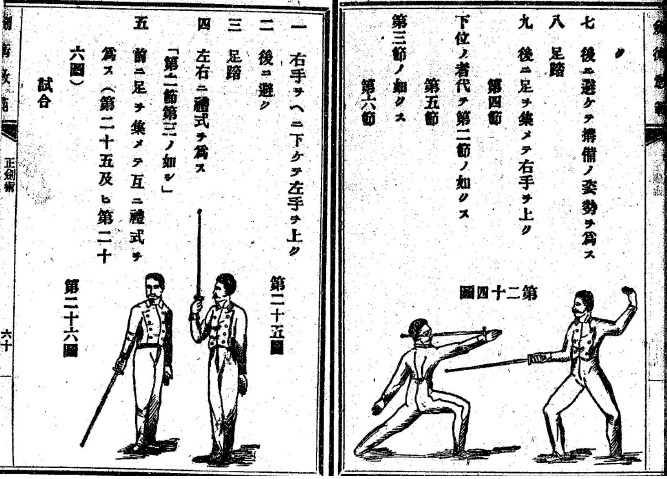 ク
七 後ニ避ケテ搆備ノ姿勢ヲ爲ス
八 足踏
九 後ニ足ヲ集メテ右手ヲ上ク
第四節
下位ノ者代テ第二節ノ如クス
第五節
第三節ノ如クス
第六節
第二十四圖
一 右手ヲヘニ下ケテ左手ヲ上ク
二 後ニ避ク
三 足踏
四 左右ニ禮式ヲ爲ス
「第二節第三ノ如シ」
五 前ニ足ヲ集メテ互ニ禮式ヲ
爲ス(第二十五及ヒ第二十
六圖)
試合
第二十五圖
第二十六圖
正劍術
六十